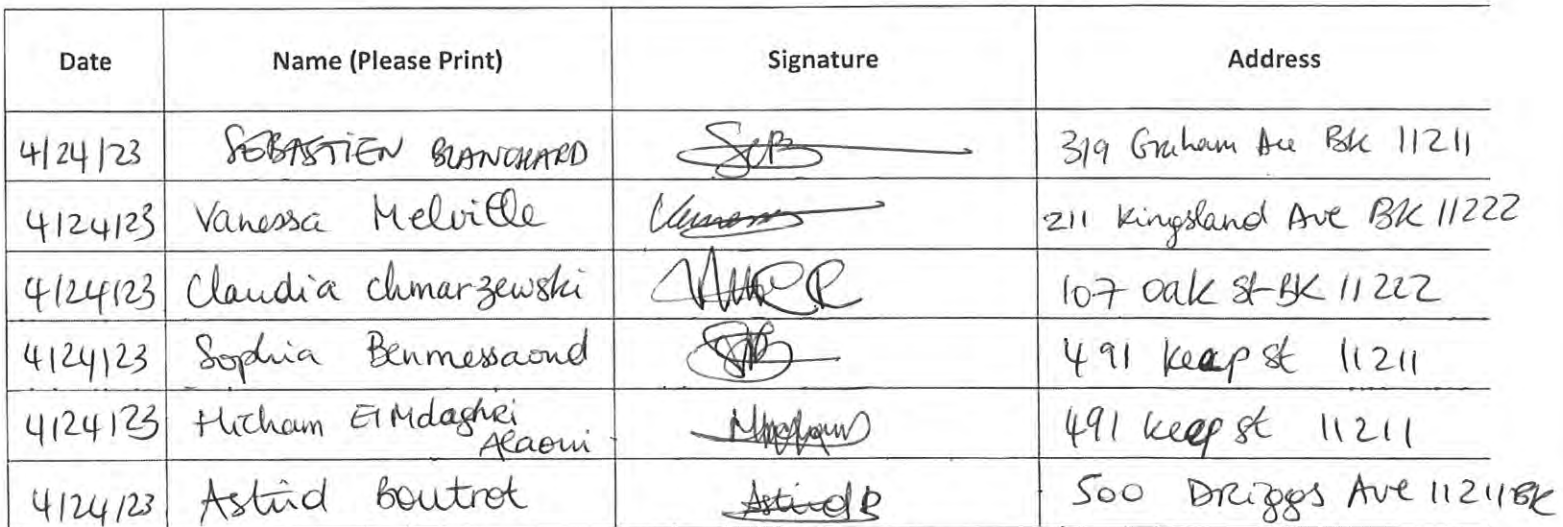 Date Name (Please Print) Signature Address
4/24/23 SEBASTIEN BLANCHARD SEB 319 Graham Ave BK 11211
4/24/23 Vanessa Melville 211 Kingsland Ave BK 11222
4/24/23 Claudia Chmarzewski 107 Oak St BK 11222
4/24/23 Sophia Benmessaoud 491 Keap st 11211
4/24/23 Hicham El Mdaghri 491 keap st 11211
Alaoui
4/24/23 Astrid Boutrot Astrid B 500 DRiggs Ave 11211 BK